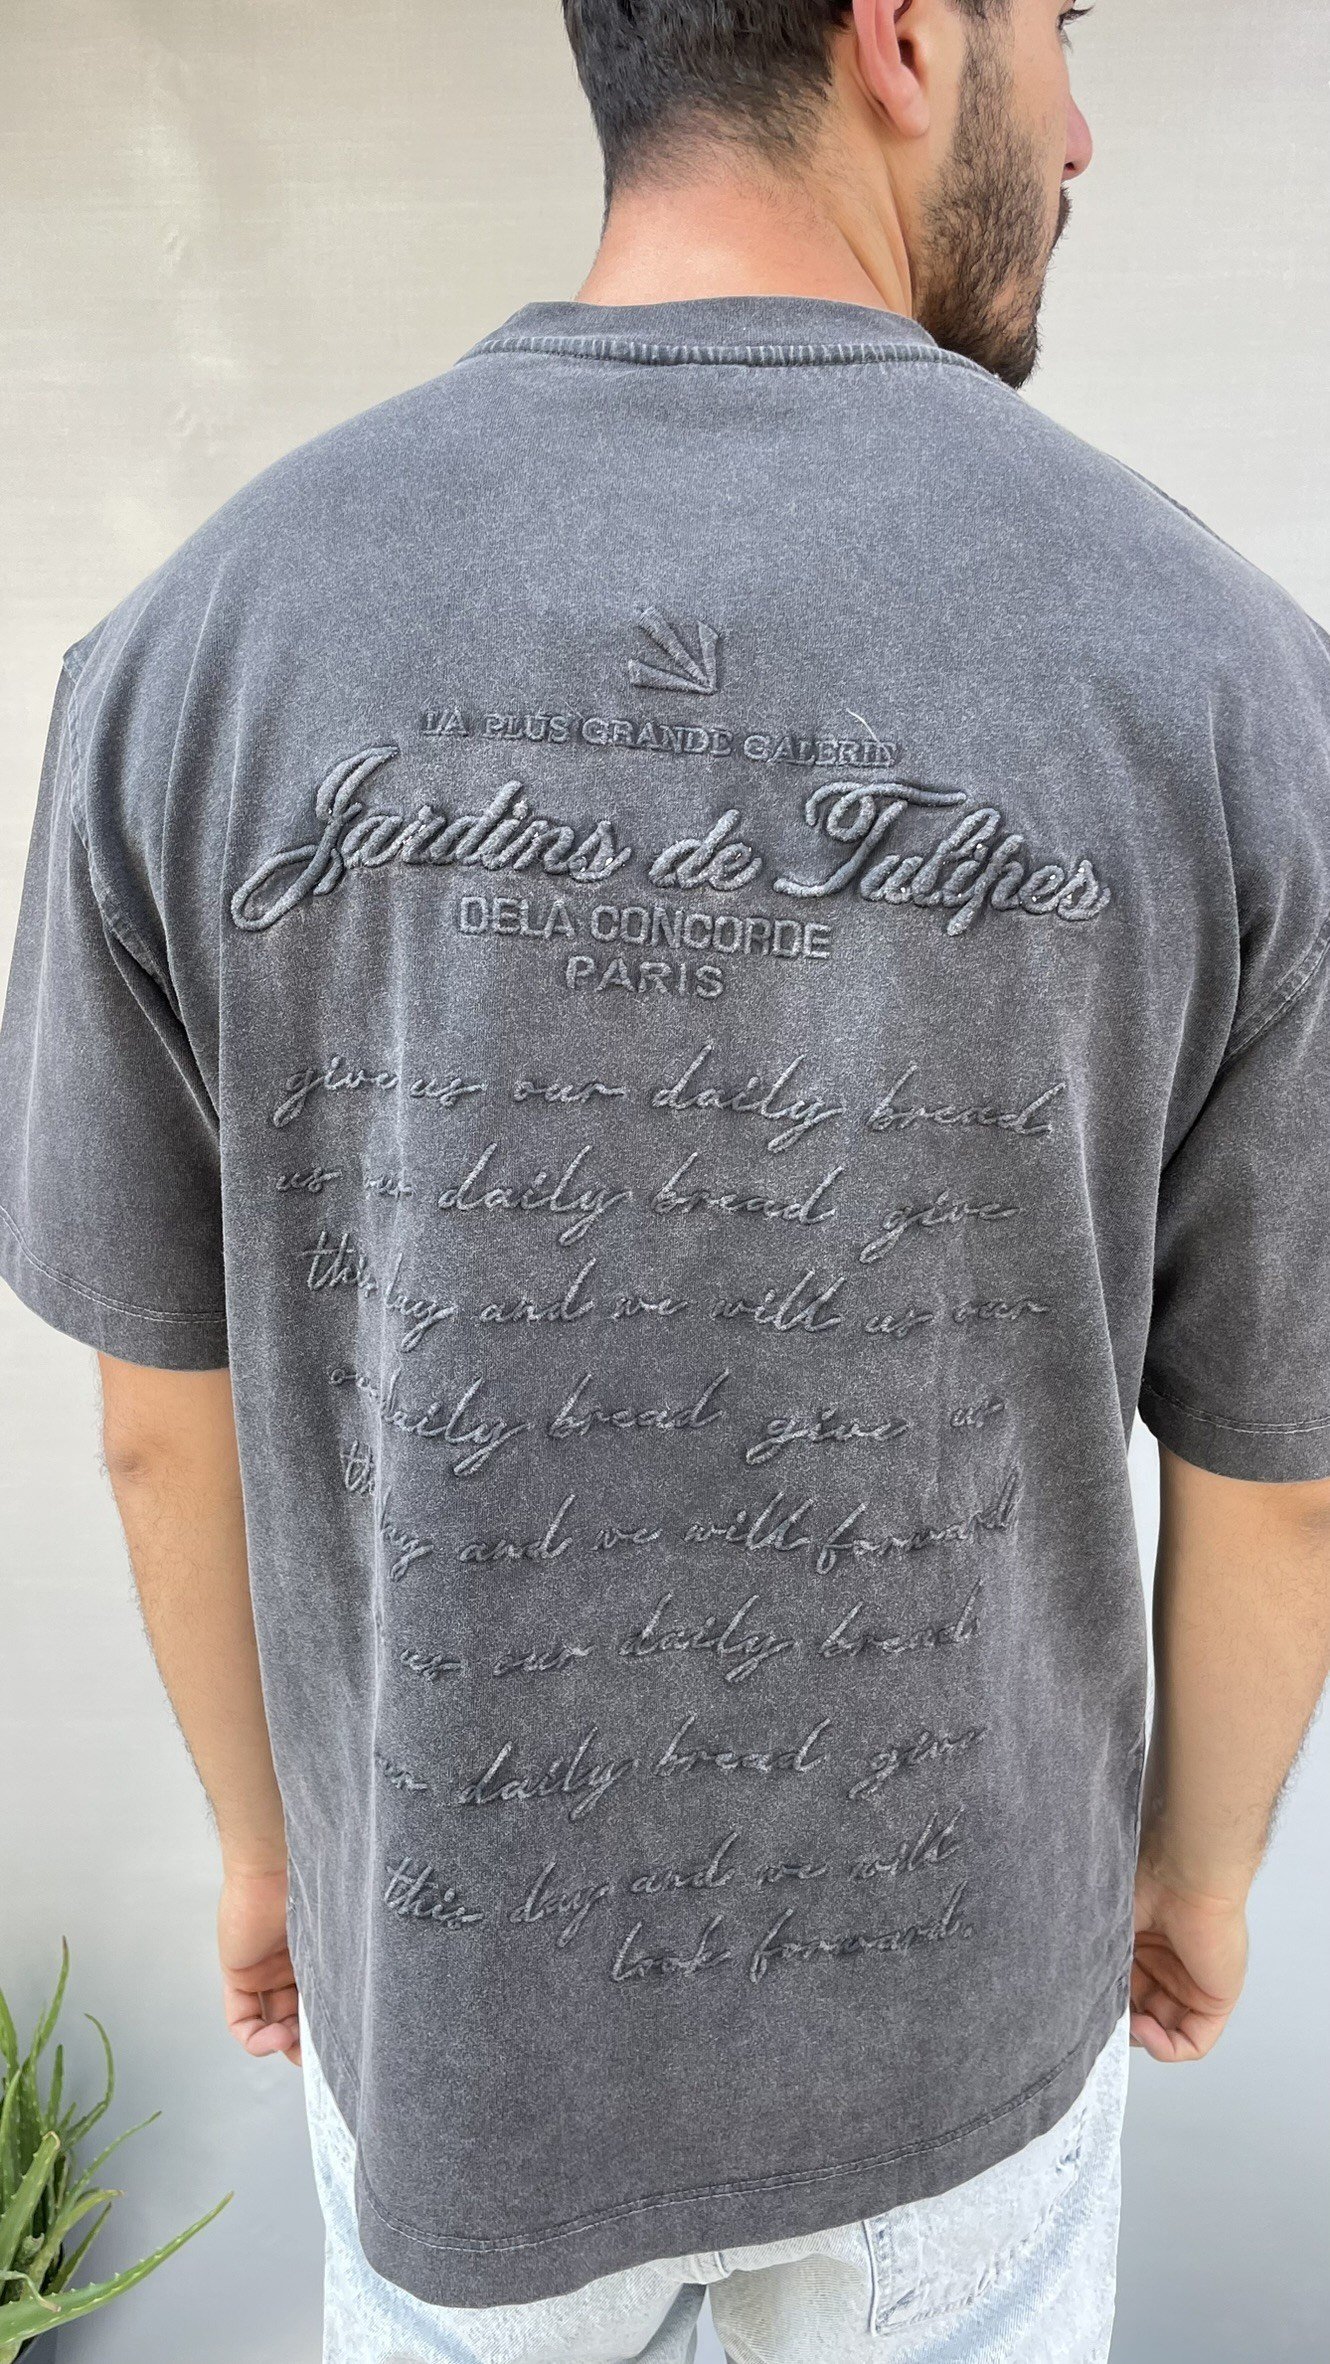 LA PLUS GRANDE GALERIE
Jardins de Tulipes
DELA CONCORDE
PARIS
give us our daily bread
us our daily bread give
this day and we will us our
our daily bread give us
day and we will forward
us our daily bread
our daily bread give
this day and we will
look forward.